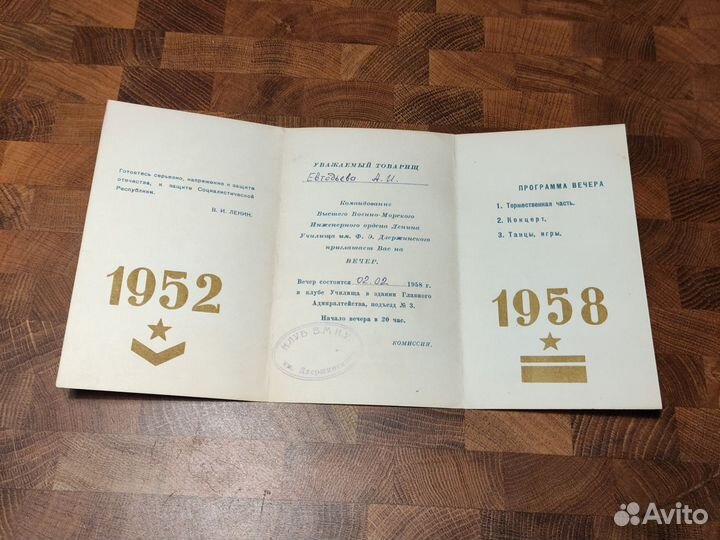 Готовтесь серьезно, напряженно к защите
отечества, к защите Социалистической
Республики.
В. И. ЛЕНИН.
1952
УВАЖАЕМЫЙ ТОВАРИЩ
Евтодьева А.И.
Командование
Высшего Военно-Морского
Инженерного ордена Ленина
Училища им. Ф. Э. Дзержинского
приглашает Вас на
ВЕЧЕР.
Вечер состоится 02.02 1958 г.
в клубе Училища в здании Главного
Адмиралтейства, подъезд № 3.
Начало вечера в 20 час.
КОМИССИЯ.
КЛУБ В.М.И.У.
им. Дзержинск
ПРОГРАММА ВЕЧЕРА
1. Торжественная часть.
2. Концерт.
3. Танцы, игры.
1958
Avito